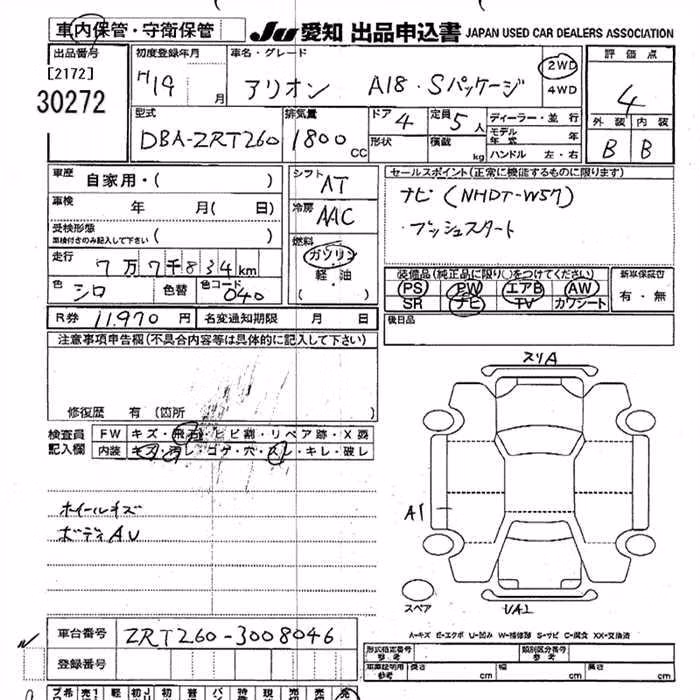 車内保管・守衛保管
JU 愛知 出品申込書 JAPAN USED CAR DEALERS ASSOCIATION
出品番号
[2172]
30272
初度登録年月
H19 月
車名・グレード
アリオン A18・Sパッケージ
2WD
4WD
評価点
4
外装 内装
B B
型式
DBA-ZRT260
排気量
1800 CC
ドア 4
形状
定員 5人
積載 kg
ディーラー・並行
モデル年式 年
ハンドル 左・右
車歴 自家用・( )
車検 年 月( 日)
受検形態
車検付きのみ記入して下さい ( )
走行 7万7千834km
色 シロ 色替 色コード 040
シフト AT
冷房 AAC
燃料
ガソリン
軽・油
( )
セールスポイント(正常に機能するものに限ります)
ナビ(NHDT-W57)
・プッシュスタート
装備品(純正品に限り○をつけてください) 新車保証書
PS PW エアB AW 有・無
SR ナビ TV カワシート
R券 11,970 円 名変通知期限 月 日
後日品
注意事項申告欄(不具合内容等は具体的に記入して下さい)
修復歴 有(箇所 )
検査員記入欄
FW キズ・飛石・ヒビ割・リペア跡・X要
内装 キズ・汚レ・コゲ・穴・スレ・キレ・破レ
ホイールキズ
ボディAU
スリA
A1
スペア
UA1
A-キズ E-エクボ U-凹み W-補修跡 S-サビ C-腐食 XX-交換済
車台番号 ZRT260-3008046
登録番号
形式指定番号 参考
類別区分番号 参考
車庫証明用 参考 長さ cm 幅 cm 高さ cm